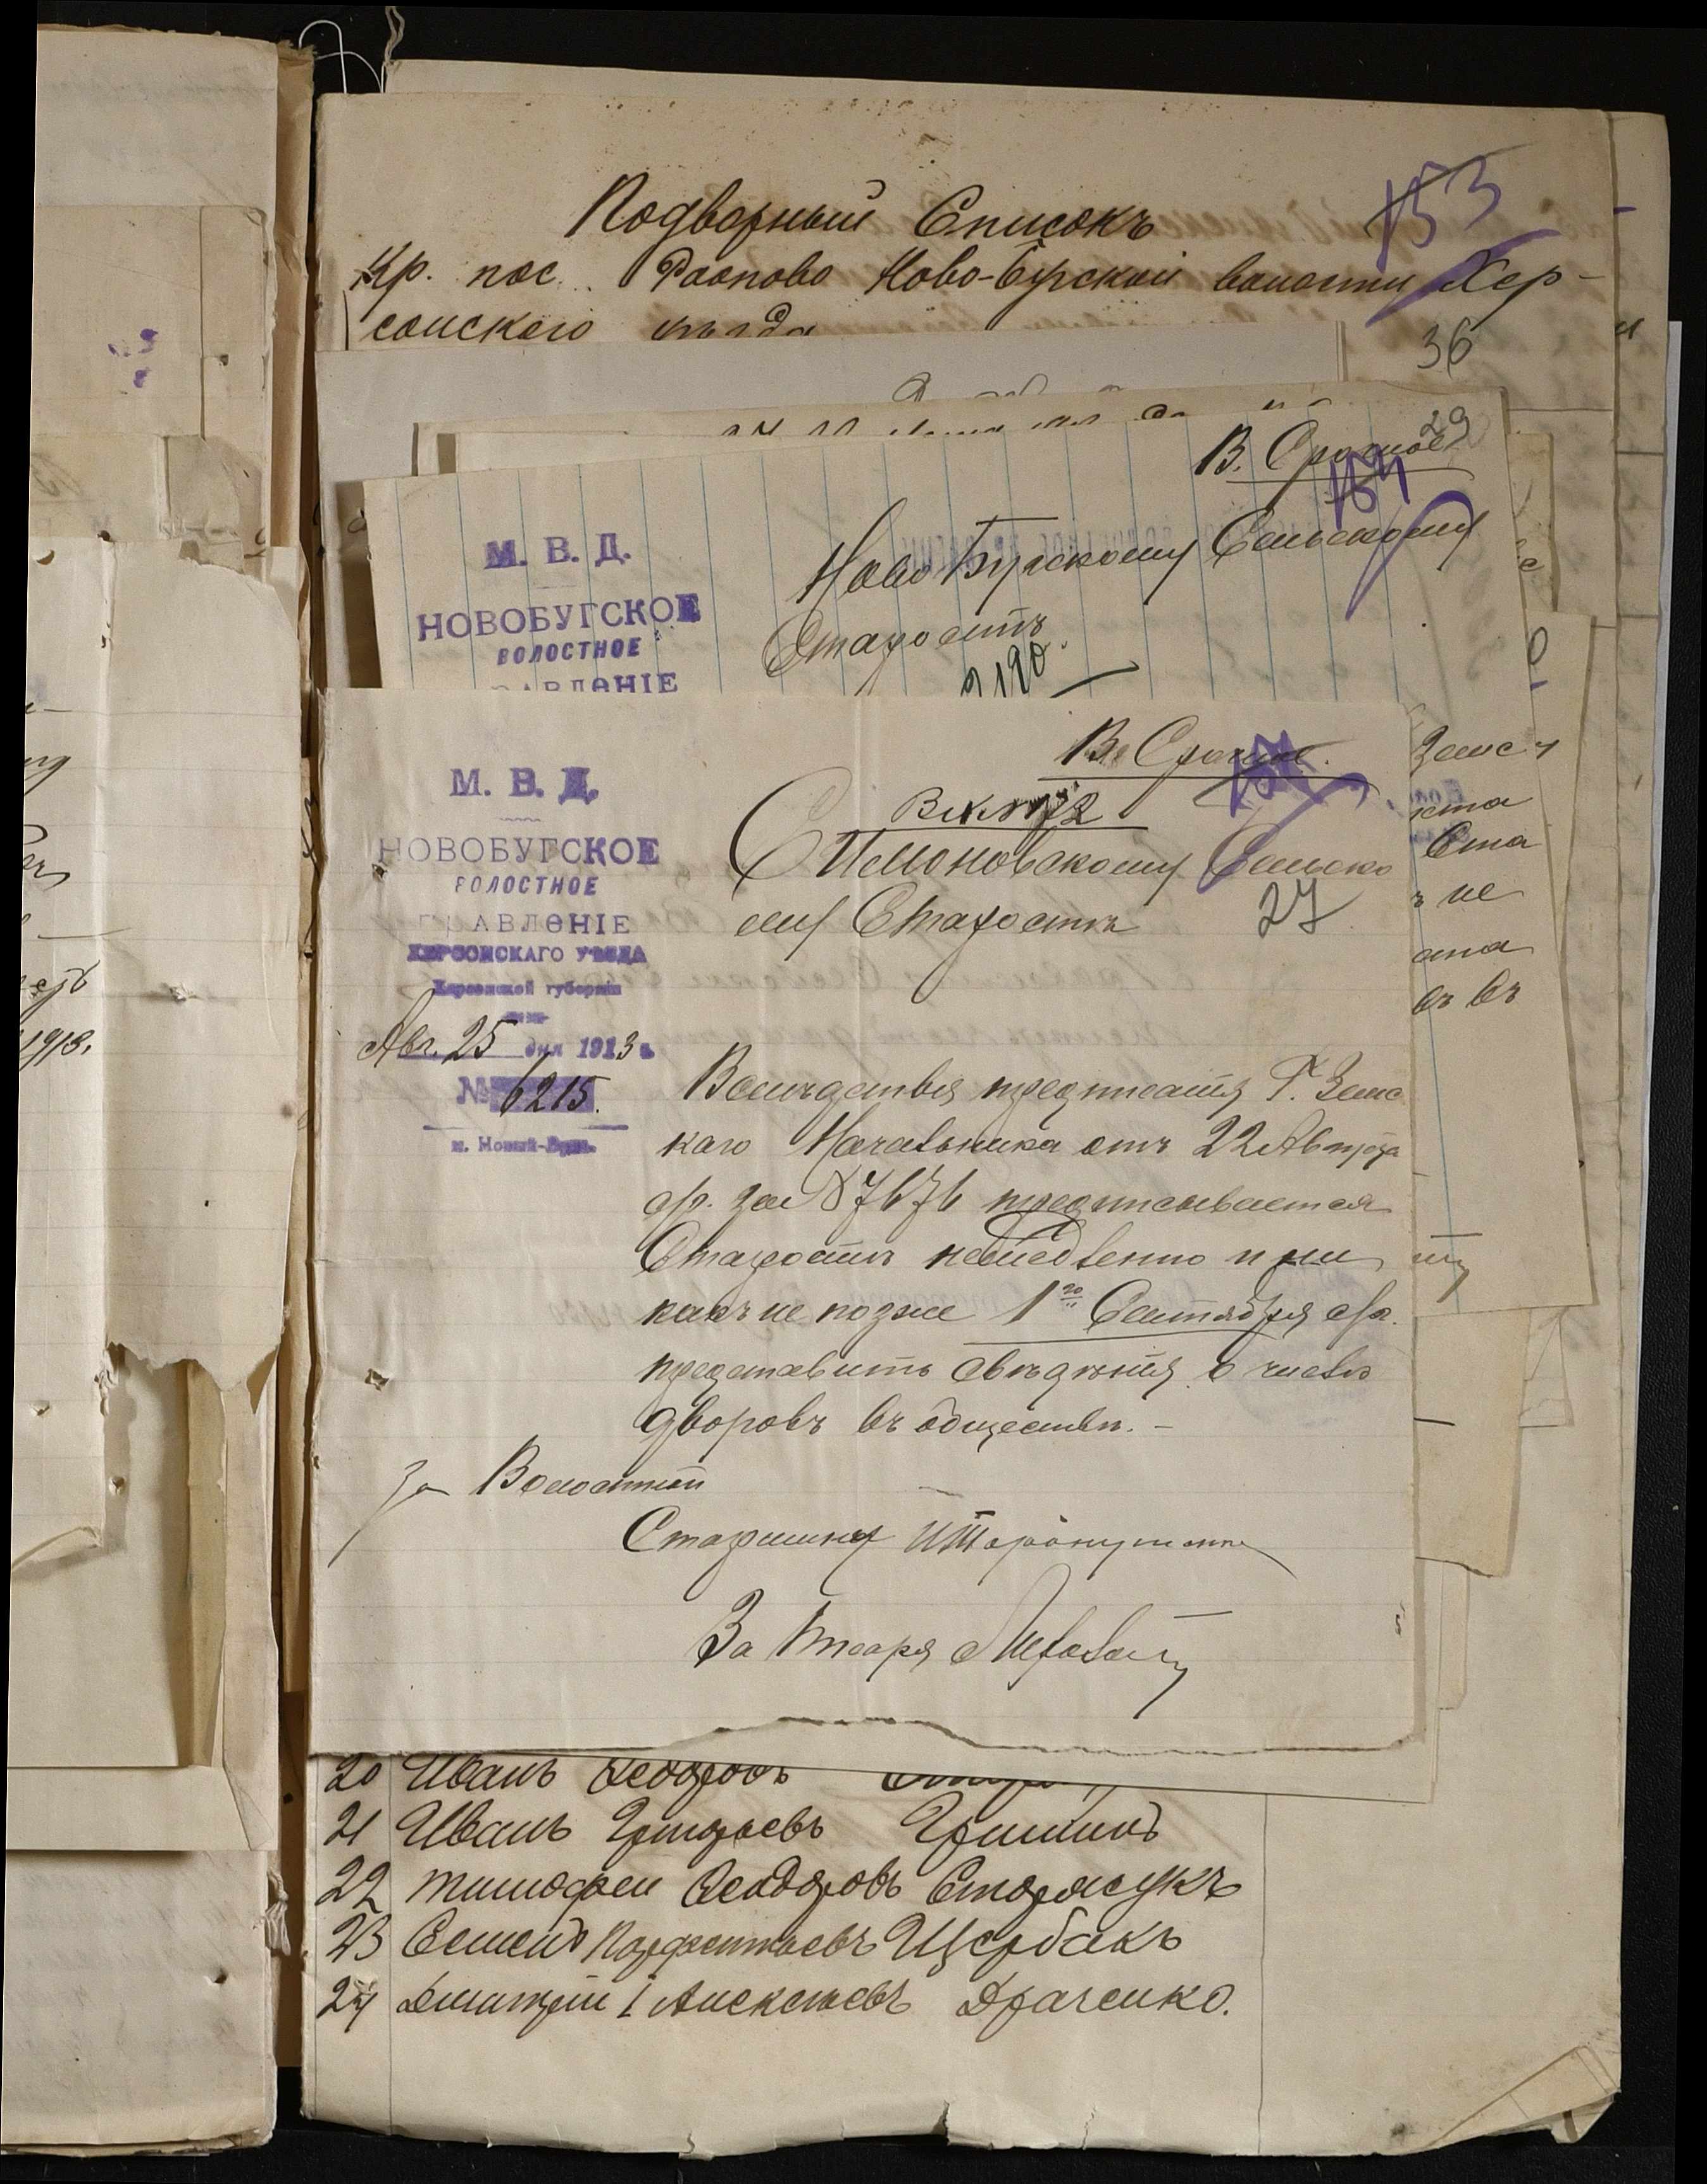 Подворный Списокъ
Кр. пос. Ново-Бугской волости Хер-
сонскаго уѣзда
153
36
29
В. Срочное
184
М. В. Д.
НОВОБУГСКОЕ
ВОЛОСТНОЕ
АВЛЕНІЕ
Ново Бугскому Сельскому
Старостѣ
190
В. Срочное.
М. В. Д.
НОВОБУГСКОЕ
ВОЛОСТНОЕ
ПРАВЛЕНІЕ
ХЕРСОНСКАГО УѢЗДА
Херсонской губерніи
Авг. 25 дня 1913 г.
№ 6215.
м. Новый-Бугъ.
Симоновскому Сельско
му Старостѣ
27
Вслѣдствіе предписанія Г. Земс
каго Начальника отъ 22 Августа
с/г. за № 7676 предписывается
Старостѣ немедленно и ни
какъ не позже 1го Сентября с/г.
представить свѣдѣнія о числѣ
дворовъ въ обществѣ. –
За Волостной
Старшина
За Писаря
Земс
кта
Ста
ъ не
ста
въ въ
1913.
20 Иванъ Феодоровъ
21 Иванъ Григорьевъ Гришинъ
22 Тимофей Феодоровъ Сторожукъ
23 Семенъ Парфентьевъ Щербакъ
24 Дмитрій 1 Алексѣевъ Драченко.